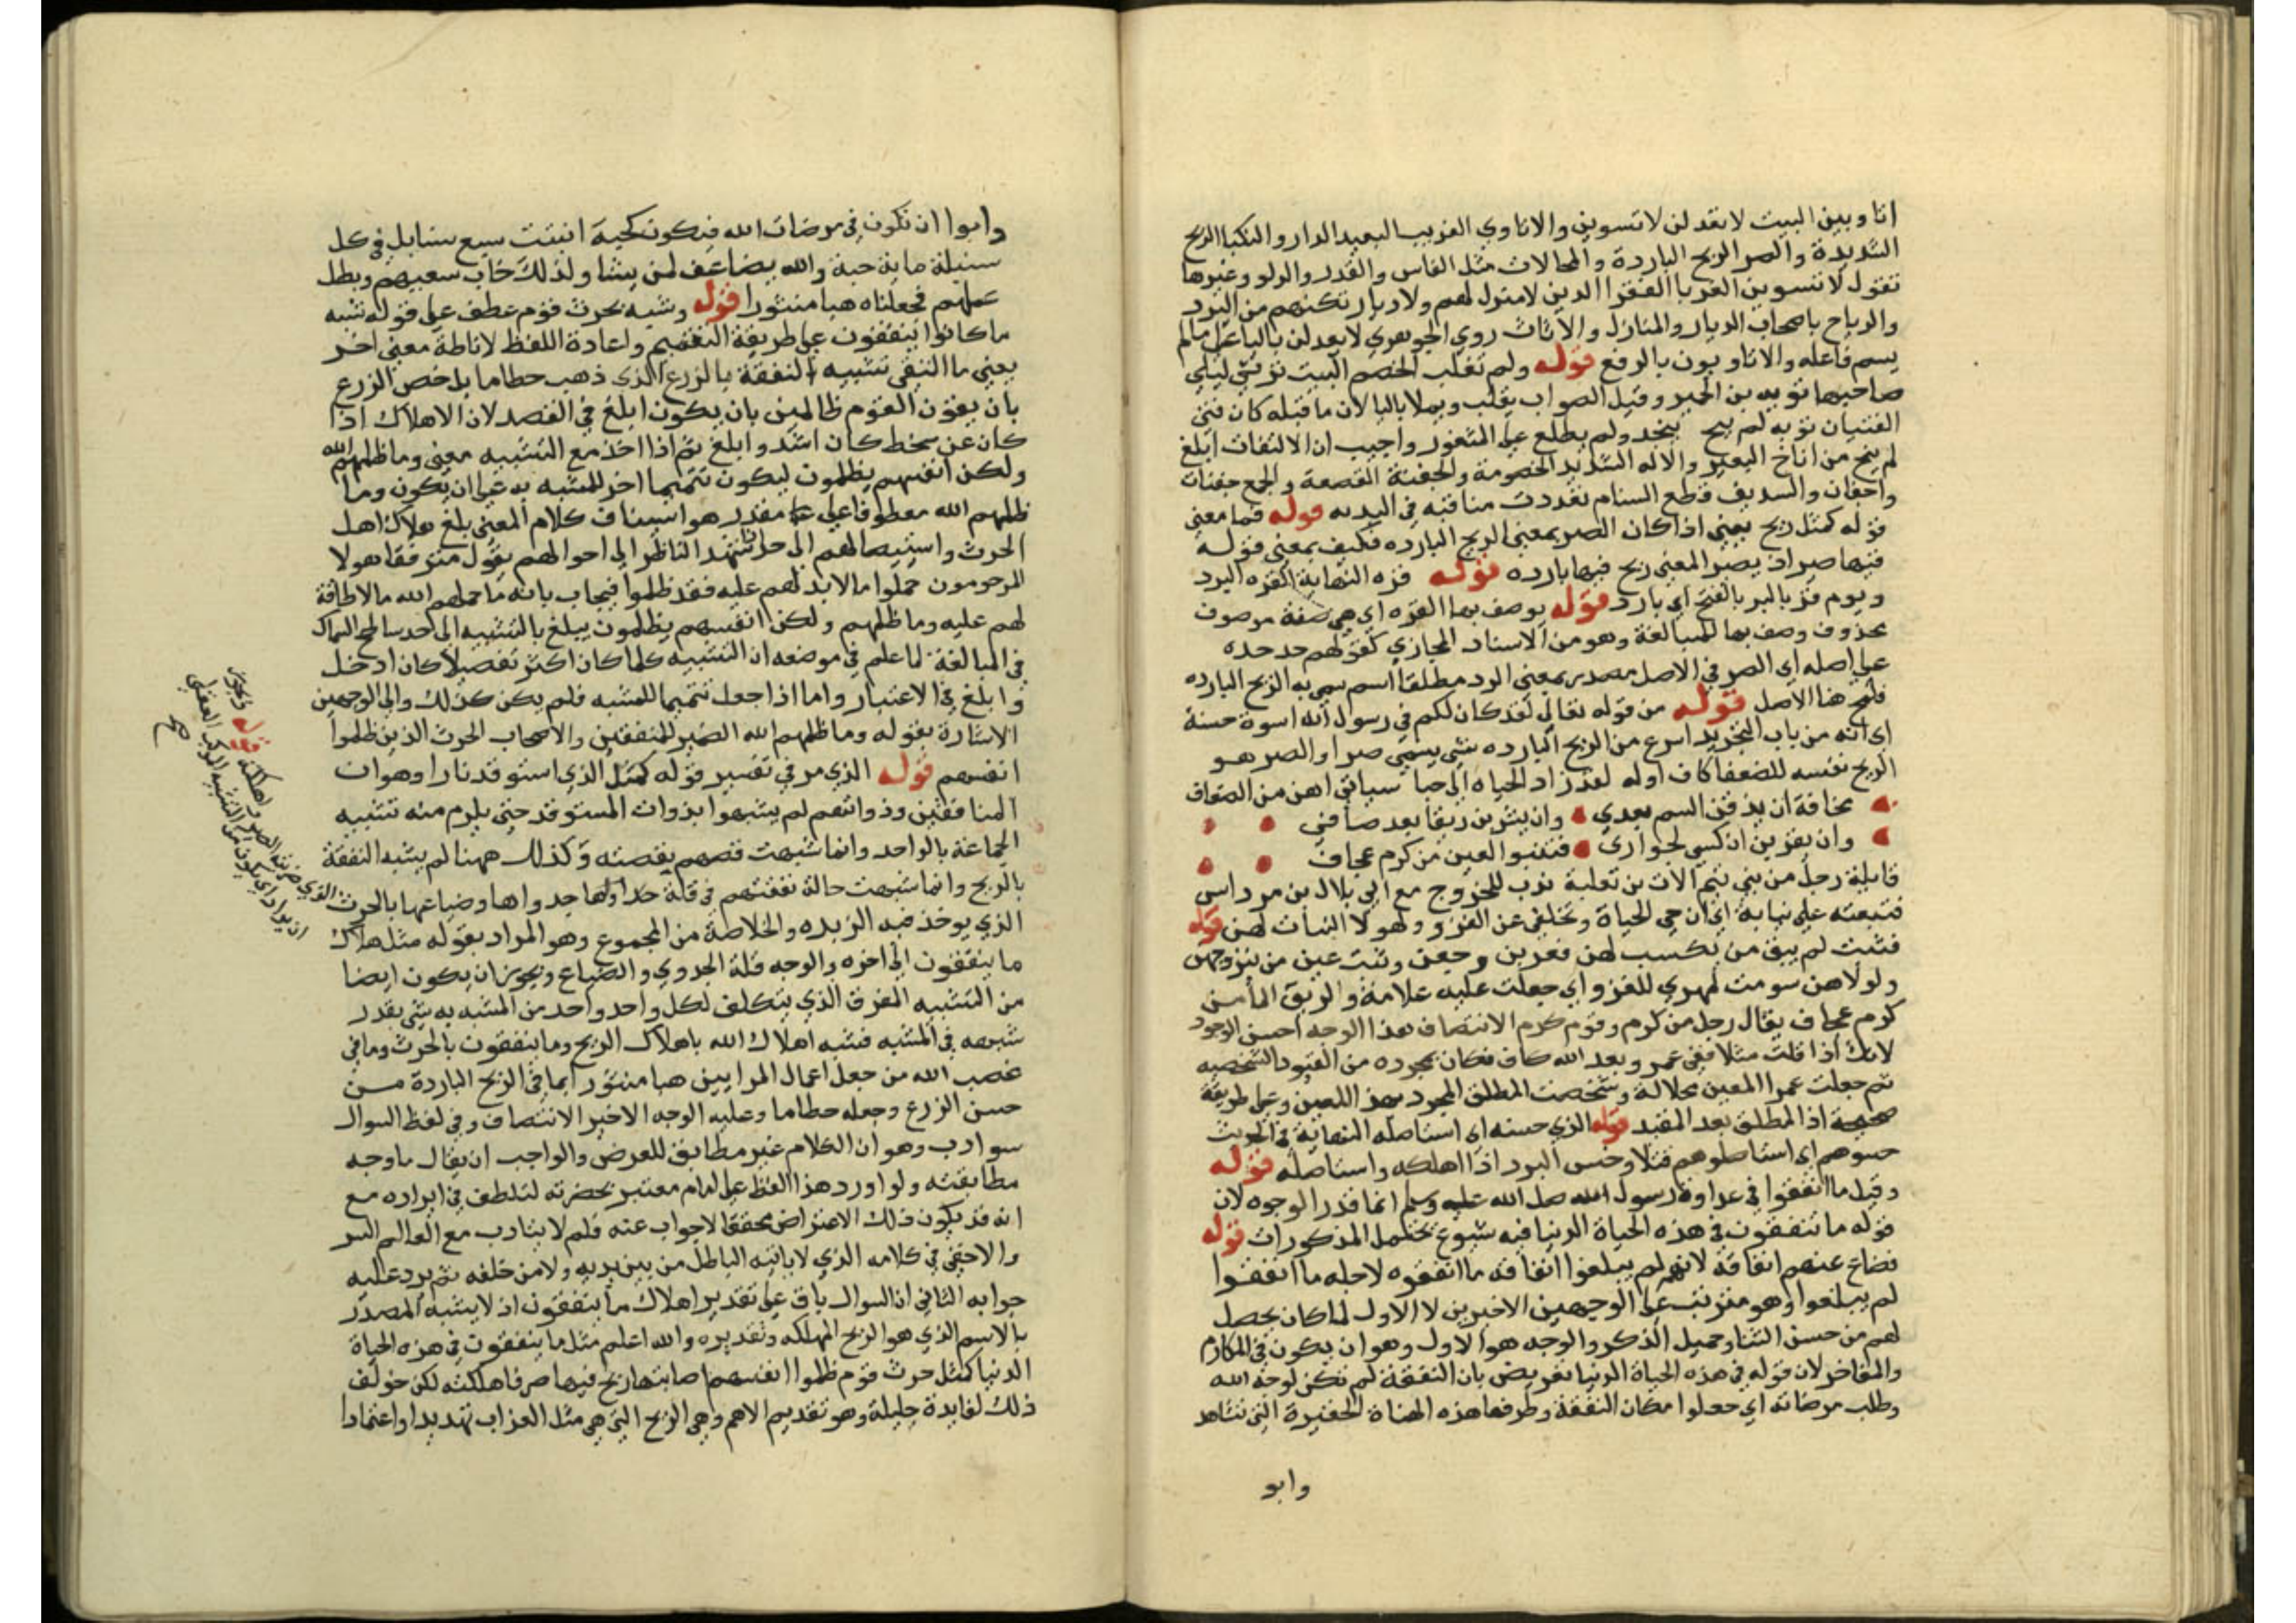 انا وبين البيت لا تعدلن لا تسوين والاتاوي الغريب البعيد الدار والنكبا الريح
الشديدة والصر الريح الباردة والمحالات مثل الفاس والقدر والدلو وغيرها
تقول لا تسوين الغربا الفقرا الذين لا منزل لهم ولا ديار تكنهم من البرد
والرياح باصحاب الديار والمنازل والاثاث روي الجوهري لا يعدلن باليا على ما لم
يسم فاعله والاتاويون بالرفع قوله ولم تغلب الخصم البيت ترثي ليلى
صاحبها توبه بن الحمير وقيل الصواب يغلب ويملا باليا لان ما قبله كان فتى
الفتيان توبه لم ينخ بنجد ولم يطلع على المتغور واجيب ان الالتفات ابلغ
لم ينخ من اناخ البعير والالد الشديد الخصومة والجفنة القصعة والجمع جفنات
وجفان والسديف قطع السنام نعددت مناقبه في الندبه قوله فما معنى
قوله كمثل ريح يعني اذا كان الصر بمعنى الريح البارده فكيف بمعنى قوله
فيها صر اذ يصير المعنى ريح فيها بارده قوله قره النهاية القره البرد
ويوم قر بالبر بالفتح اي بارد قوله يوصف بها القره اي هي صفة موصوف
محذوف وصف بها للمبالغة وهو من الاسناد المجازي كقولهم جد جده
على اصله اي الصر في الاصل مصدر بمعنى البرد مطلقا اسم سمي به الريح البارده
فلمح هنا الاصل قوله من قوله تعالى لقد كان لكم في رسول الله اسوة حسنة
اي انه من باب التجريد انتزع من الريح البارده شي يسمى صرا والصر هو
الريح نفسه للضعفا كاف اوله لقد زاد الحياه الي حبا بناتي انهن من الضعاف
مخافة ان يذقن البئس بعدي وان يشربن رنقا بعد صافي
وان يعرين ان كسي الجواري فتنبوا العين من كرم عجاف
قايله رجل من بني تيم اللات بن ثعلبة ندب للخروج مع ابي بلال بن مرداس
فتبعته على نيابة اي ان حبي الحياة وتخلفي عن الغزو ولهولا البنات لهن قوله
فتبت لم يبق من يكسب لهن فعرين وجعن ونبت عين من يتزوجهن
ولولا هن سومت مهري للغزو اي جعلت عليه علامة والرنق الما
كرم عجاف يقال رجل من كرم وقوم كرم الانتصاف هذا الوجه احسن الوجوه
لانك اذا قلت مثلا ففي عمرو بعد الله كاف فكان بمجرده من القيود الشخصيه
ثم جعلت عمرا المعين محلا له وشخصت المطلق المجرد بهذا المعين وعلى طريقة
صحيحة اذ المطلق بعد المقيد قوله الذي حسنه اي استاصله النهاية في الحديث
حسوهم اي استاصلوهم قتلا وحس البرد اذا اهلكه واستاصله قوله
وقيل ما انفقوا في عداوة رسول الله صلى الله عليه وسلم انما قدر الوجوه لان
قوله ما تنفقون في هذه الحياة الدنيا فيه شيوع يحتمل المذكورات قوله
فضاع عنهم انفاقه لانهم لم يبلغوا انفاقه ما انفقوه لاجله ما انفقوا
لم يبلغوا وهو مترتب على الوجهين الاخيرين لا الاول لما كان يحصل
لهم من حسن الثنا وجميل الذكر والوجه هو الاول وهو ان يكون في المكارم
والمفاخر لان قوله في هذه الحياة الدنيا تعريض بان النفقة لم تكن لوجه الله
وطلب مرضاته اي جعلوا مكان النفقة وظرفها هذه الحياة الحقيرة التي تشاهد
وابو
وابوا ان تكون في مرضات الله فتكون كحبة انبتت سبع سنابل في كل
سنبلة ماية حبة والله يضاعف لمن يشا ولذلك خاب سعيهم وبطل
عملهم فجعلناه هبا منثورا قوله وشبه بحرث قوم عطف على قوله شبه
ما كانوا ينفقون على طريقة التقسيم واعادة اللفظ لاناطة معنى اخر
يعني ما اكتفى بتشبيه النفقة بالزرع الذي ذهب حطاما بل خص الزرع
بان يعزى القوم ظالمين بان يكون ابلغ في القصد لان الاهلاك اذا
كان عن سخط كان اشد وابلغ ثم اذا اخذ مع التشبيه معنى وما ظلمهم الله
ولكن انفسهم يظلمون ليكون تتميما اخر للمشبه به على ان يكون وما
ظلمهم الله معطوفا على مقدر هو استيناف كلام المعنى بلغ هلاك اهل
الحرث واستيصالهم الى حد اذا شهد الناظر الى احوالهم يقول مترفقا هولا
المرحومون حملوا ما لا يد لهم عليه فقد ظلموا فيجاب بانه ما حملهم الله ما لا طاقة
لهم عليه وما ظلمهم ولكن انفسهم يظلمون يبلغ بالتشبيه الى حد سامح السماك
في المبالغة لما علم في موضعه ان التشبيه كلما كان اكثر تفصيلا كان ادخل
وابلغ في الاعتبار واما اذا جعل تتميما للمشبه فلم يكن كذلك والى الوجهين
الاشارة بقوله وما ظلمهم الله الضمير للمنفقين والاصحاب الحرث الذين ظلموا
انفسهم قوله الذي مر في تفسير قوله كمثل الذي استوقد نارا وهو ان
المنافقين وذواتهم لم يشبهوا بذوات المستوقد حتى يلزم منه تشبيه
الجماعة بالواحد وانما شبهت قصتهم بقصته وكذلك ههنا لم يشبه النفقة
بالريح وانما شبهت حالة نفقتهم في قلة جدواها وضياعها بالحرث
الذي يوخذ فيه الزبده والخلاصة من المجموع وهو المراد بقوله مثل هلاك
ما ينفقون الى اخره والوجه قلة الجدوي والضياع ويجوز ان يكون ايضا
من التشبيه المفرق الذي يتكلف لكل واحد واحد من المشبه به شي يقدر
شبهه في المشبه فشبه اهلاك الله باهلاك الريح وما ينفقون بالحرث وما في
غضب الله من جعل اعمال المرايين هبا منثورا بما في الريح الباردة من
حس الزرع وجعله حطاما وعليه الوجه الاخير الانتصاف وفي لفظ السوال
سو ادب وهو ان الكلام غير مطابق للغرض والواجب ان يقال ما وجه
مطابقته ولو اورد هذا اللفظ على امام معتبر بحضرته لتلطف في ايراده مع
انه قد يكون ذلك الاعتراض محققا لا جواب عنه فلم لا يتادب مع العالم السر
والاخفى في كلامه الذي لا ياتيه الباطل من بين يديه ولا من خلفه ثم يرد عليه
جوابه الثاني ان السوال باق على تقدير اهلاك ما ينفقون اذ لا يشبه المصدر
بالاسم الذي هو الريح المهلكه وتقديره والله اعلم مثل ما ينفقون في هذه الحياة
الدنيا كمثل حرث قوم ظلموا انفسهم اصابتها ريح فيها صر فاهلكته لكن خولف
ذلك لفايدة جليلة وهو تقديم الاهم وهي الريح التي هي مثل العذاب تهديدا واعتمادا
الذي ضربته الصر فاهلكته قوله ويجوز
ان يراد اي يكون من التشبيه المركب العقلي
صح